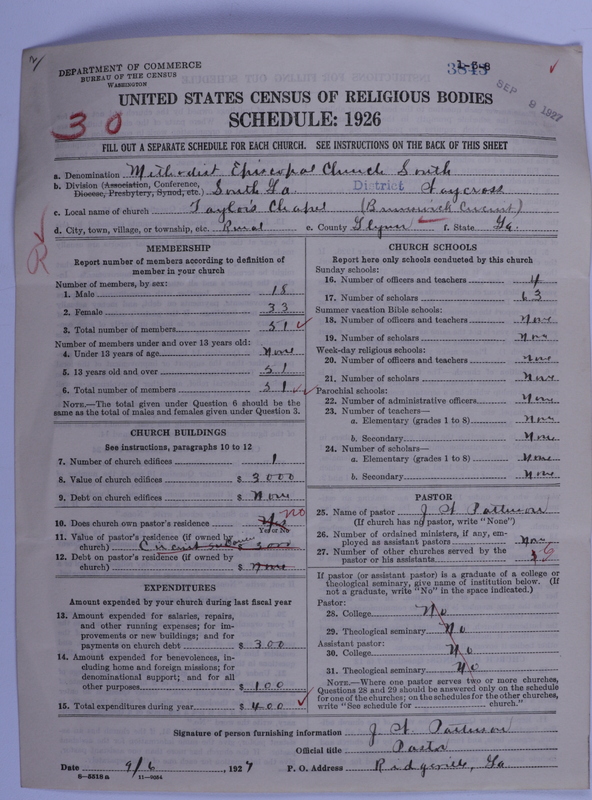 2/
DEPARTMENT OF COMMERCE
BUREAU OF THE CENSUS
WASHINGTON
SEP 9 1927
UNITED STATES CENSUS OF RELIGIOUS BODIES
30
SCHEDULE: 1926
FILL OUT A SEPARATE SCHEDULE FOR EACH CHURCH. SEE INSTRUCTIONS ON THE BACK OF THIS SHEET
a. Denomination Methodist Episcopal Church South
b. Division (Association, Conference, Diocese, Presbytery, Synod, etc.) South Ga. District Waycross
c. Local name of church Taylor's Chapel (Brunswick Circuit)
d. City, town, village, or township, etc. Rural e. County Glynn f. State Ga.
R
MEMBERSHIP
Report number of members according to definition of
member in your church
Number of members, by sex:
1. Male 18
2. Female 33
3. Total number of members 51
Number of members under and over 13 years old:
4. Under 13 years of age None
5. 13 years old and over 51
6. Total number of members 51
NOTE.—The total given under Question 6 should be
same as the total of males and females given under Question 3.
CHURCH BUILDINGS
See instructions, paragraphs 10 to 12
7. Number of church edifices 1
8. Value of church edifices $ 3000
9. Debt on church edifices $ None
10. Does church own pastor's residence Yes no
Yes or No
11. Value of pastor's residence (if owned by
church) $ 3000
12. Debt on pastor's residence (if owned by
church) $ None
EXPENDITURES
Amount expended by your church during last fiscal year
13. Amount expended for salaries, repairs,
and other running expenses; for im-
provements or new buildings; and for
payments on church debt $ 300
14. Amount expended for benevolences, in-
cluding home and foreign missions; for
denominational support; and for all
other purposes $ 100
15. Total expenditures during year $ 400
CHURCH SCHOOLS
Report here only schools conducted by this church
Sunday schools:
16. Number of officers and teachers 4
17. Number of scholars 63
Summer vacation Bible schools:
18. Number of officers and teachers None
19. Number of scholars None
Week-day religious schools:
20. Number of officers and teachers None
21. Number of scholars None
Parochial schools:
22. Number of administrative officers None
23. Number of teachers—
a. Elementary (grades 1 to 8) None
b. Secondary None
24. Number of scholars—
a. Elementary (grades 1 to 8) None
b. Secondary None
PASTOR
25. Name of pastor Patterson
(If church has no pastor, write "None")
26. Number of ordained ministers, if any, em-
ployed as assistant pastors None
27. Number of other churches served by the
pastor or his assistants 6
If pastor (or assistant pastor) is a graduate of a college or
theological seminary, give name of institution below. (If
not a graduate, write "No" in the space indicated.)
Pastor:
28. College No
29. Theological seminary No
Assistant pastor:
30. College No
31. Theological seminary No
NOTE.—Where one pastor serves two or more churches,
Questions 28 and 29 should be answered only on the schedule
for one of the churches; on the schedules for the other churches,
write "See schedule for church."
Signature of person furnishing information Patterson
Official title Pastor
Date 9/6, 1927 P. O. Address Ridgeville, Ga
8—5518 a 11—9054